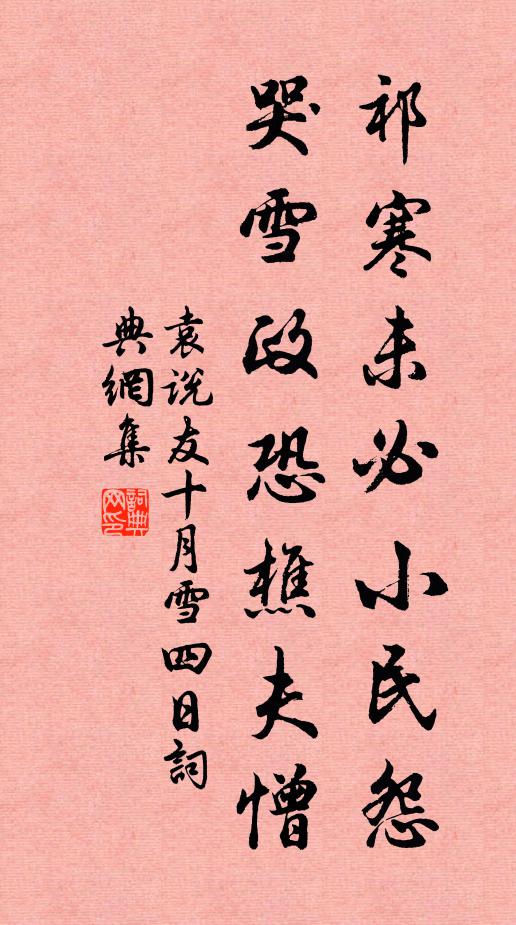 祁寒未必小民怨
哭雪政恐樵夫憎
袁說友十月雪四日詞
典網集
詞典網印